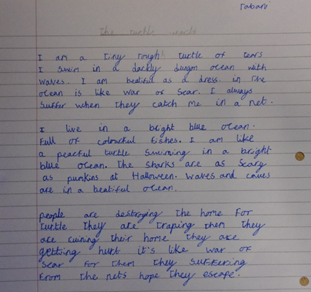 The turtle
I am a tiny tough turtle of tears
I swim in a dackly dason ocean with
waves. I am beatiful as a dress. in the
ocean is like war or Scar. I always
Suffer when they catch me in a net.
I live in a bright blue ocean.
Full of colourful fishes. I am like
a peaceful turtle Swimming in a bright
blue ocean. The Sharks are as Scary
as punkins at Halloween. waves and caves
are in a beatiful ocean.
people are destroying the home For
turtle they are traping them they
are ruining their home they are
getting hurt it's like war or
Scar For them they suffering
From the nets hope they escape